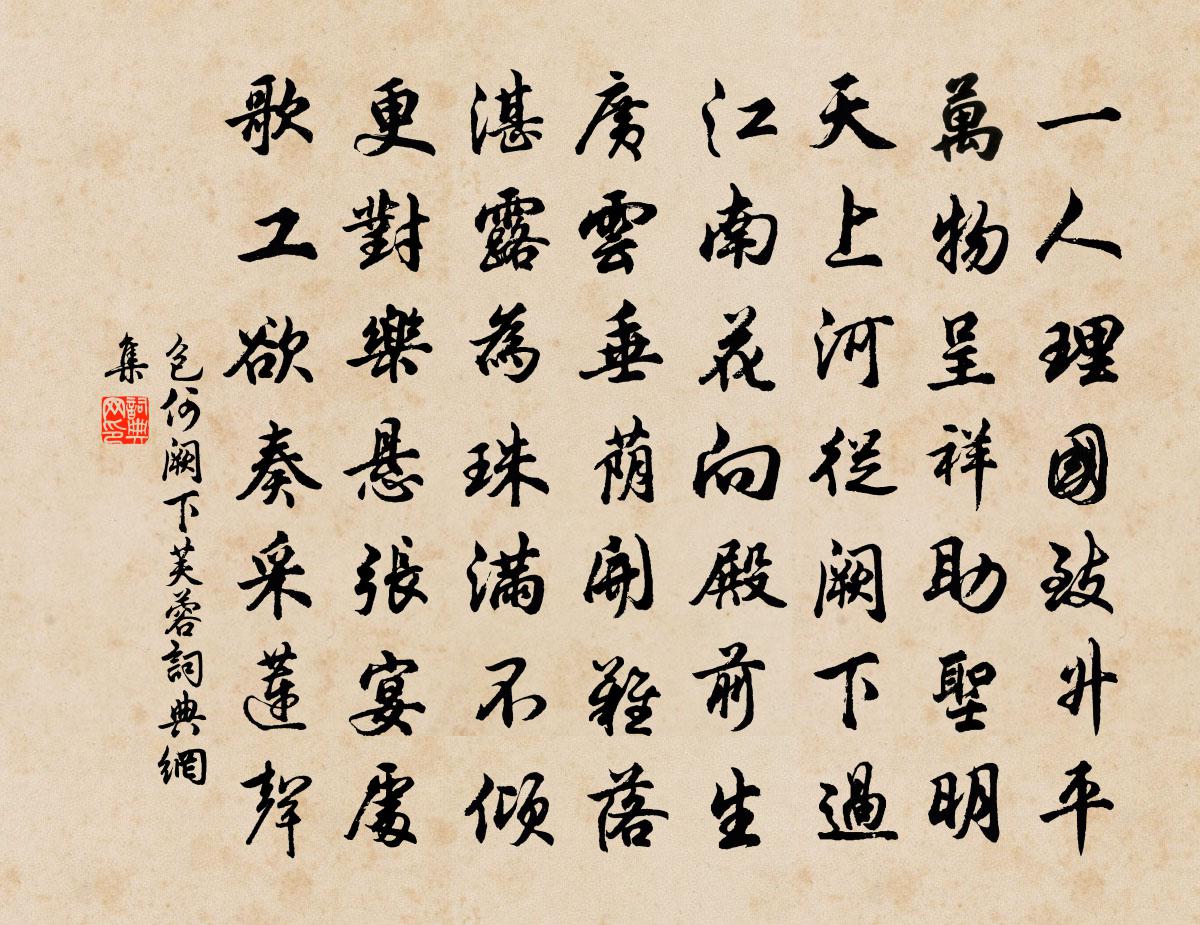 一人理國致升平
萬物呈祥助聖明
天上河從闕下過
江南花向殿前生
廣雲垂蔭開難落
湛露為珠滿不傾
更對樂懸張宴處
歌工欲奏采蓮聲
包何闕下芙蓉詞典網
集
詞典
网印